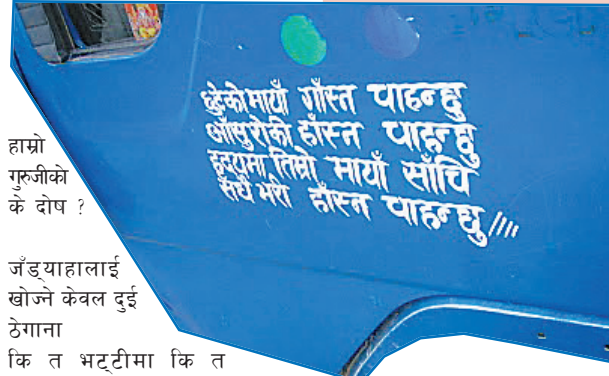 छुटेको मायाँ गाँस्न चाहन्छु
आँसु रोकी हाँस्न चाहन्छु
हृदयमा तिम्रो मायाँ साँचि
सधै भरी हाँस्न चाहन्छु ////
हाम्रो
गुरुजीको
के दोष ?
जँड्याहालाई
खोज्ने केवल दुई
ठेगाना
कि त भट्टीमा कि त